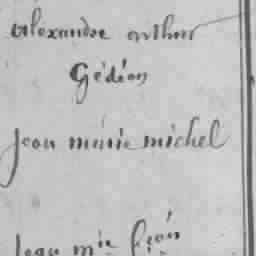 alexandre arthur
Gédéon
Jean marie michel
Jean mie fran